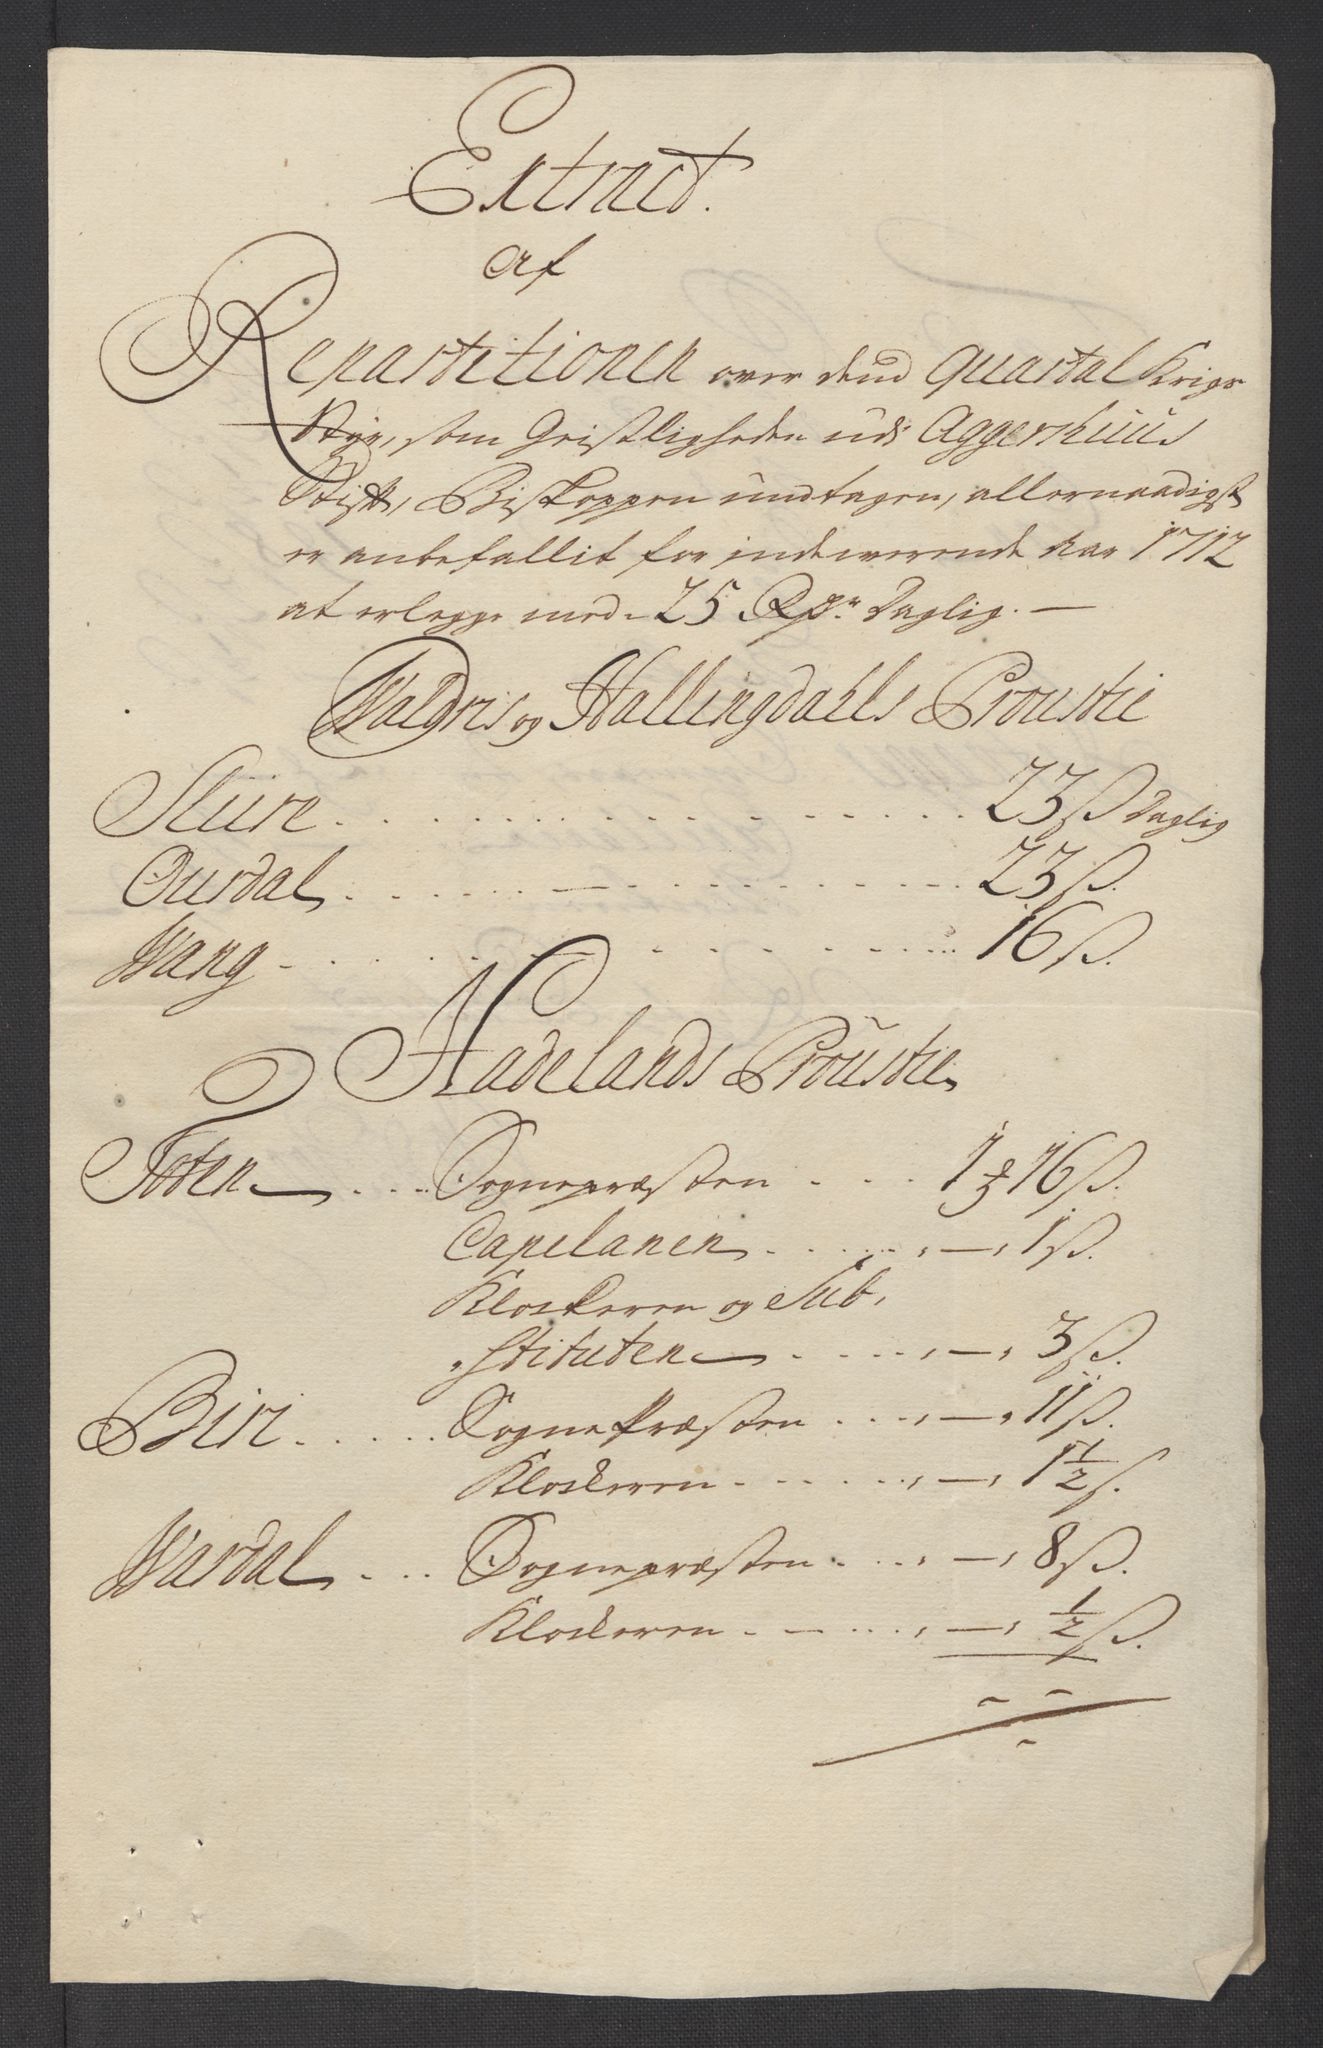 Extract.
Af
Repartitionen over dend Quartal Krigs
Styr, som Geistligheden udi Aggershuus
Stift, Biskoppen undtagen, allernaadigst
er anbefallit for indeværende Aar 1712
at erlegge med 25 Rdr. Daglig. —
Waldris og Hallingdahls Proustie
Sluire . . . . . . . . . . 23 ß Daglig
Ourdal . . . . . . . . . . 23 ß.
Wang . . . . . . . . . . 16 ß.
Hadelands Proustie
Toten . . . . Sognepræsten . . . . 1 16 ß.
Capelanen . . . . . „ — „ 1 ß.
Klockeren og Sub„
„stituten . . . . „ — „ 3 ß.
Biri . . . . . Sognepræsten . . . „ — „ 11 ß.
Klockeren . . . . . „ — „ 1 1/2 ß.
Wardal . . . Sognepræsten . . . „ — „ 8 ß.
Klockeren . . . . . „ — „ 1/2 ß.